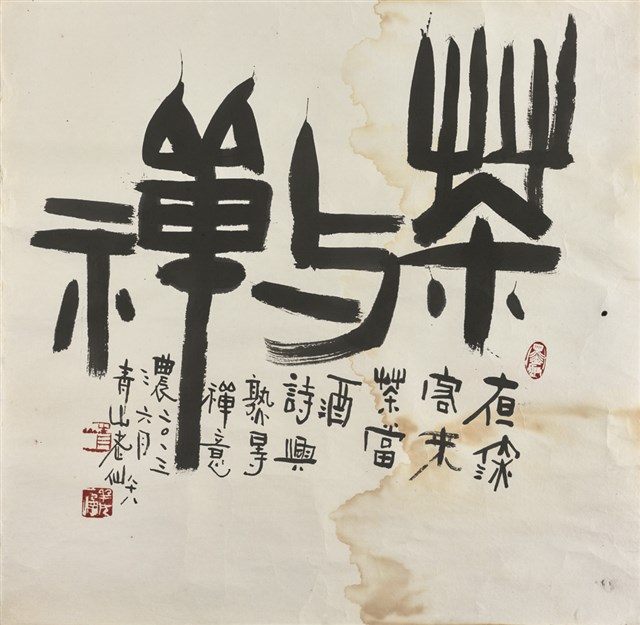 茶与禪
夜深
客来
茶當
酒
詩興
禪意
濃二〇〇三
六月
青山老仙